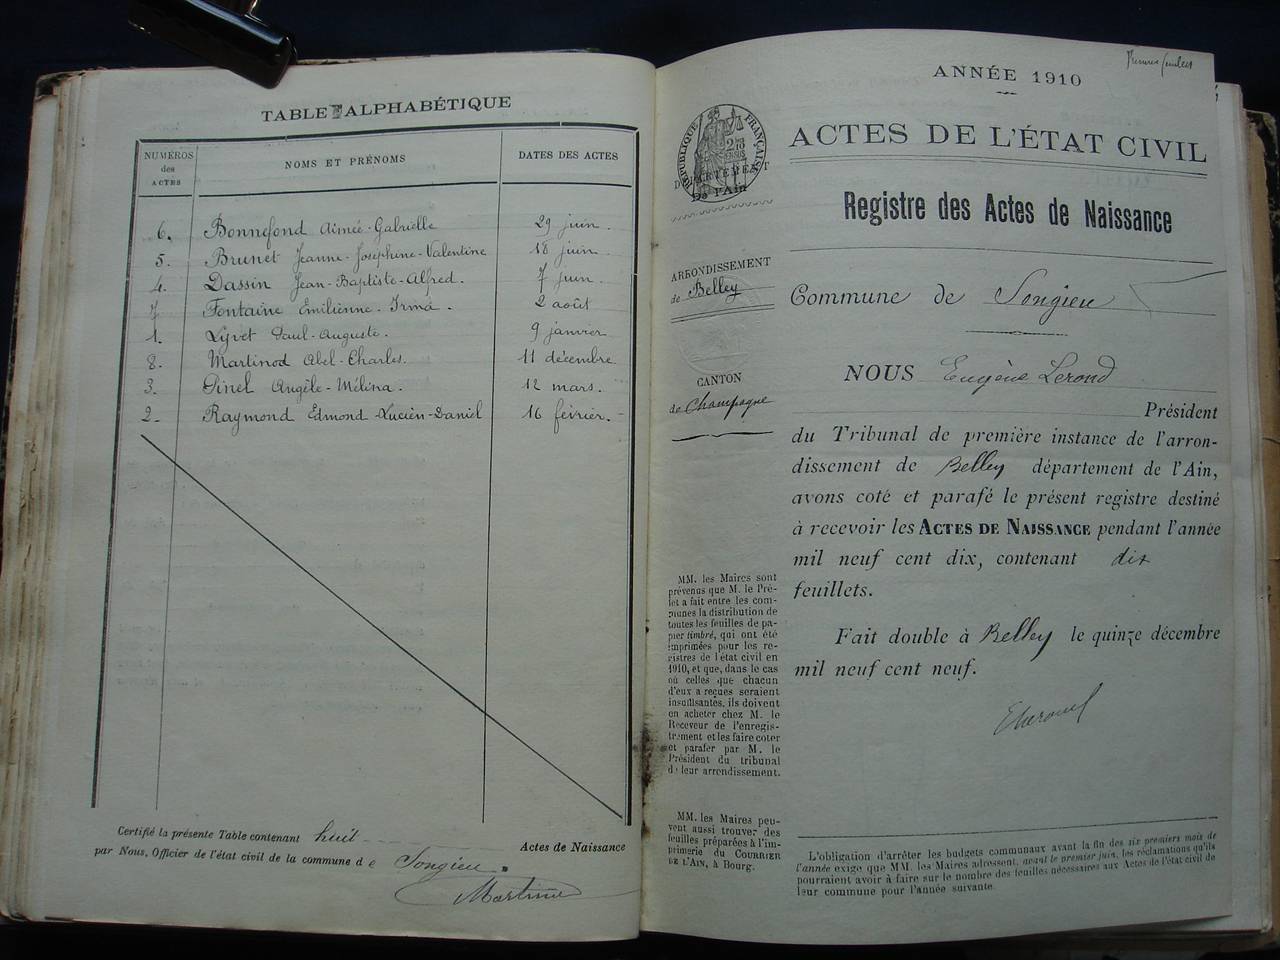 TABLE ALPHABÉTIQUE
NUMÉROS des ACTES NOMS ET PRÉNOMS DATES DES ACTES
6. Bonnefond Aimée-Gabrielle 29 juin.
5. Brunet Jeanne-Joséphine-Valentine 18 juin.
4. Dassin Jean-Baptiste-Alfred. 7 juin.
7 Fontaine Emilienne-Irma. 2 août
1. Lyvet Paul-Auguste. 9 janvier
8. Martinod Abel-Charles. 11 décembre
3. Pinel Angèle-Mélina. 12 mars.
2- Raymond Edmond-Lucien-Daniel 16 février.-
Certifié la présente Table contenant huit Actes de Naissance
par Nous, Officier de l'état civil de la commune de Songieu.
ANNÉE 1910
ACTES DE L'ÉTAT CIVIL
Registre des Actes de Naissance
RÉPUBLIQUE FRANÇAISE
DÉPARTEMENT
De l'Ain
ARRONDISSEMENT
de Belley
CANTON
de Champagne
Commune de Songieu
NOUS Eugène Lerond
Président
du Tribunal de première instance de l'arron-
dissement de Belley département de l'Ain,
avons coté et parafé le présent registre destiné
à recevoir les ACTES DE NAISSANCE pendant l'année
mil neuf cent dix, contenant dix
feuillets.
Fait double à Belley le quinze décembre
mil neuf cent neuf.
MM. les Maires sont
prévenus que M. le Pré-
fet a fait entre les com-
munes la distribution de
toutes les feuilles de pa-
pier timbré, qui ont été
imprimées pour les re-
gistres de l'état civil en
1910, et que, dans le cas
où celles que chacun
d'eux a reçues seraient
insuffisantes, ils doivent
en acheter chez M. le
Receveur de l'enregis-
trement et les faire coter
et parafer par M. le
Président du tribunal
de leur arrondissement.
MM. les Maires peu-
vent aussi trouver des
feuilles préparées à l'im-
primerie du COURRIER
DE L'AIN, à Bourg.
L'obligation d'arrêter les budgets communaux avant la fin des six premiers mois de
l'année exige que MM. les Maires adressent, avant le premier juin, les réclamations qu'ils
pourraient avoir à faire sur le nombre des feuilles nécessaires aux Actes de l'état civil de
leur commune pour l'année suivante.